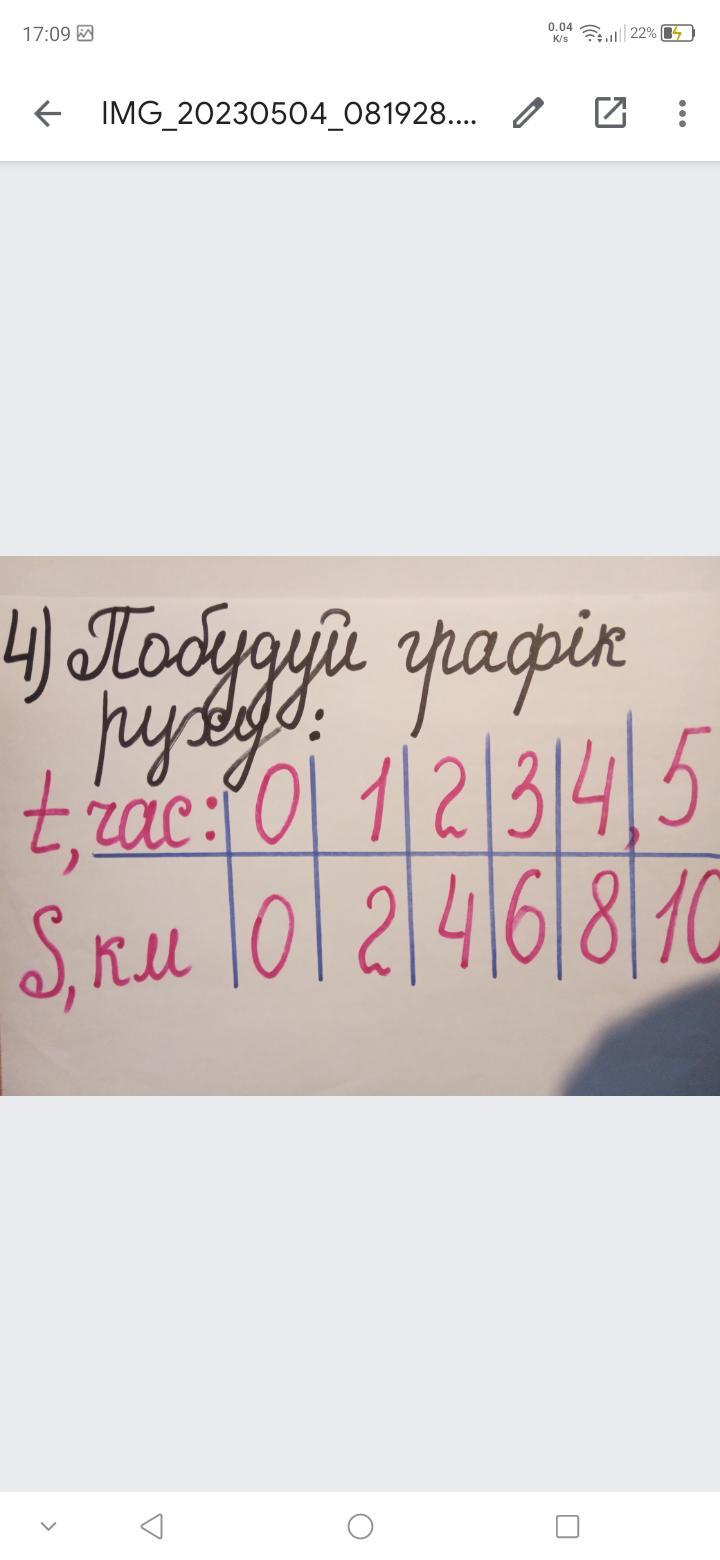 17:09 0.04 K/s 22%
IMG_20230504_081928....
4) Побудуй графік
руху:
t, час: 0 1 2 3 4, 5
S, км 0 2 4 6 8 10